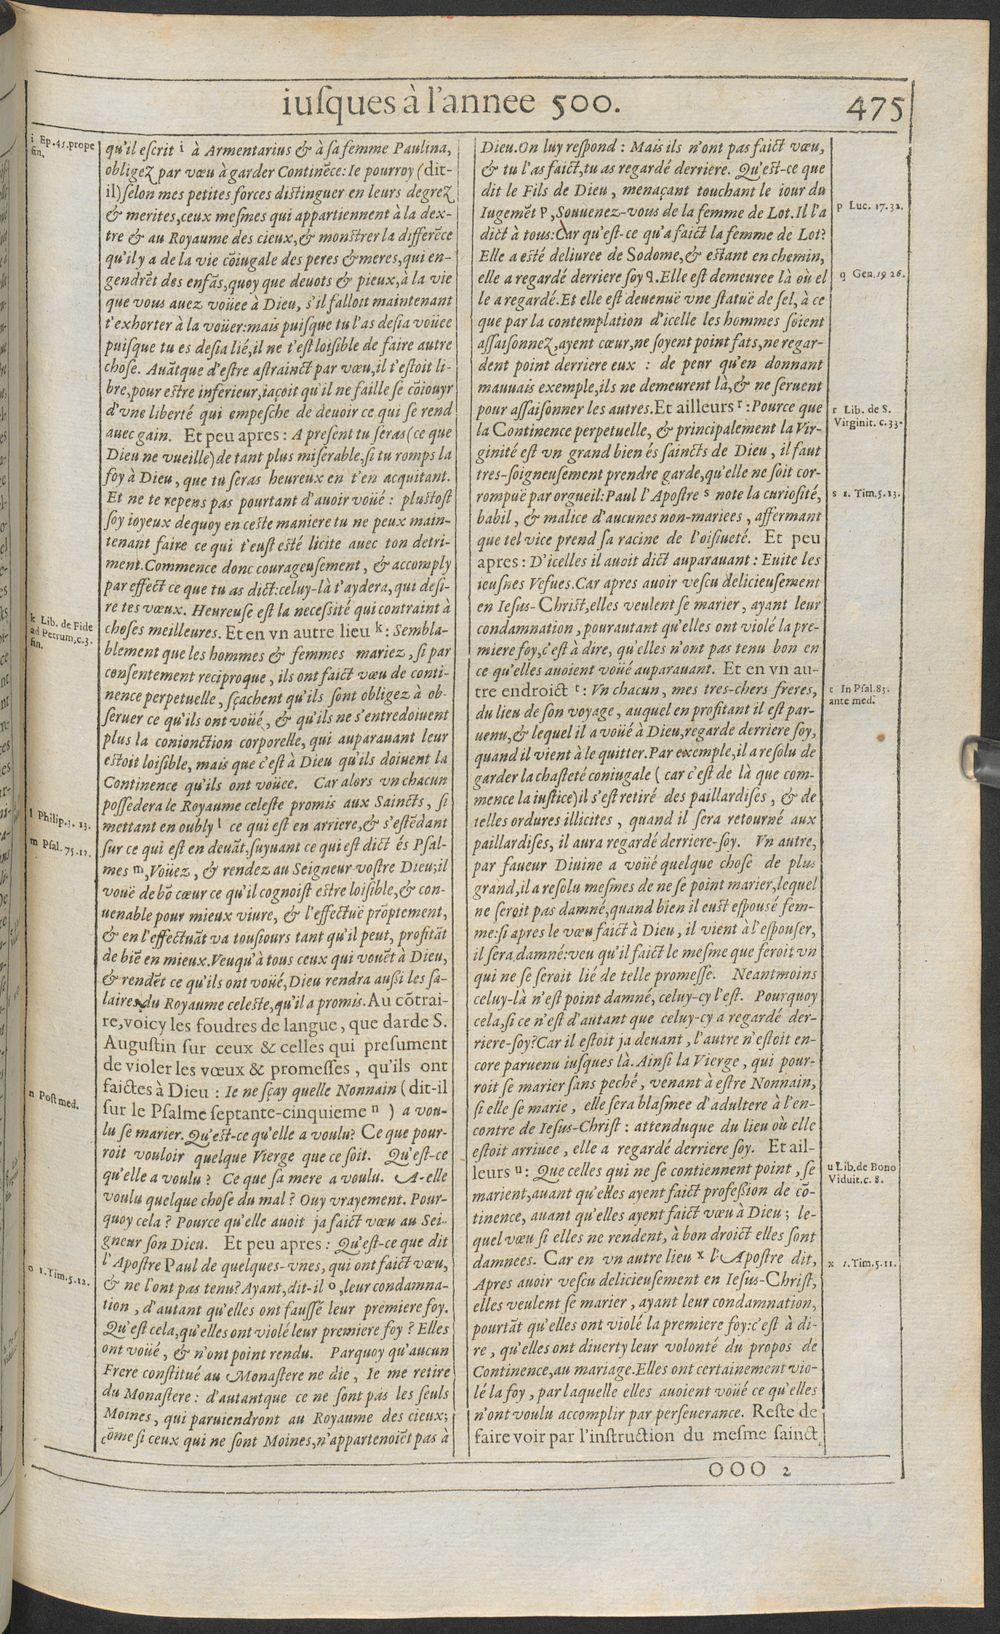 iuſques à l'annee 500.
475
i Ep.45.prope
fin.
qu'il eſcrit i à Armentarius & à ſa femme Paulina,
obligeZ par vœu à garder Continẽce: Ie pourroy (dit-
il) ſelon mes petites forces distinguer en leurs degreZ
& merites, ceux meſmes qui appartiennent à la dex-
tre & au Royaume des cieux, & monstrer la differẽce
qu'il y a de la vie cõiugale des peres & meres, qui en-
gendrẽt des enfãs, quoy que deuots & pieux, à la vie
que vous auez voüee à Dieu, s'il falloit maintenant
t'exhorter à la voüer: mais puiſque tu l'as deſia voüee
puiſque tu es deſia lié, il ne t'eſt loiſible de faire autre
choſe. Auãtque d'eſtre aſtrainct par vœu, il t'eſtoit li-
bre, pour eſtre inferieur, iaçoit qu'il ne faille ſe cõiouyr
d'vne liberté qui empeſche de deuoir ce qui ſe rend
auec gain. Et peu apres: A preſent tu ſeras (ce que
Dieu ne vueille) de tant plus miſerable, ſi tu romps la
foy à Dieu, que tu ſeras heureux en t'en acquitant.
Et ne te repens pas pourtant d'auoir voüé: pluſtoſt
ſoy ioyeux dequoy en ceſte maniere tu ne peux main-
tenant faire ce qui t'euſt eſté licite auec ton detri-
ment. Commence donc courageuſement, & accomply
par effect ce que tu as dict: celuy-là t'aydera, qui deſi-
re tes vœux. Heureuſe eſt la neceſsité qui contraint à
choſes meilleures. Et en vn autre lieu k: Sembla-
blement que les hommes & femmes mariez, ſi par
conſentement reciproque, ils ont faict vœu de conti-
nence perpetuelle, ſçachent qu'ils ſont obligez à ob-
ſeruer ce qu'ils ont voüé, & qu'ils ne s'entredoiuent
plus la conionction corporelle, qui auparauant leur
eſtoit loiſible, mais que c'eſt à Dieu qu'ils doiuent la
Continence qu'ils ont voüee. Car alors vn chacun
poſſedera le Royaume celeſte promis aux Saincts, ſi
mettant en oubly l ce qui eſt en arriere, & s'eſtẽdant
ſur ce qui eſt en deuãt, ſuyuant ce qui eſt dict és Pſal-
mes m, Voüez, & rendez au Seigneur voſtre Dieu; il
vouë de bõ cœur ce qu'il cognoiſt eſtre loiſible, & con-
uenable pour mieux viure, & l'effectuë prõptement,
& en l'effectuãt va touſiours tant qu'il peut, profitãt
de biẽ en mieux. Veuqu'à tous ceux qui vouẽt à Dieu,
& rendẽt ce qu'ils ont voüé, Dieu rendra auſsi les ſa-
laires du Royaume celeſte, qu'il a promis. Au cõtrai-
re, voicy les foudres de langue, que darde S.
Auguſtin ſur ceux & celles qui preſument
de violer les vœux & promeſſes, qu'ils ont
faictes à Dieu: Ie ne ſçay quelle Nonnain (dit-il
ſur le Pſalme ſeptante-cinquieme n ) a vou-
lu ſe marier. Qu'eſt-ce qu'elle a voulu? Ce que pour-
roit vouloir quelque Vierge que ce ſoit. Qu'eſt-ce
qu'elle a voulu? Ce que ſa mere a voulu. A-elle
voulu quelque choſe du mal? Ouy vrayement. Pour-
quoy cela? Pource qu'elle auoit ja faict vœu au Sei-
gneur ſon Dieu. Et peu apres: Qu'eſt-ce que dit
l'Apoſtre Paul de quelques-vnes, qui ont faict vœu,
& ne l'ont pas tenu? Ayant, dit-il o, leur condamna-
tion, d'autant qu'elles ont fauſſé leur premiere foy.
Qu'eſt cela, qu'elles ont violé leur premiere foy? Elles
ont voüé, & n'ont point rendu. Parquoy qu'aucun
Frere conſtitué au Monaſtere ne die, Ie me retire
du Monaſtere: d'autantque ce ne ſont pas les ſeuls
Moines, qui paruiendront au Royaume des cieux;
cõme ſi ceux qui ne ſont Moines, n'appartenoiẽt pas à
k Lib. de Fide
ad Petrum, c.3.
fin.
l Philip.3. 13.
m Pſal. 75.12.
n Poſt med.
o 1.Tim.5.12.
Dieu. On luy reſpond: Mais ils n'ont pas faict vœu,
& tu l'as faict, tu as regardé derriere. Qu'eſt-ce que
dit le Fils de Dieu, menaçant touchant le iour du
Iugemẽt p, Souuenez-vous de la femme de Lot. Il l'a
dict à tous: Car qu'eſt-ce qu'a faict la femme de Lot?
Elle a eſté deliuree de Sodome, & eſtant en chemin,
elle a regardé derriere ſoy q. Elle eſt demeuree là où el
le a regardé. Et elle eſt deuenuë vne ſtatuë de ſel, à ce
que par la contemplation d'icelle les hommes ſoient
aſſaiſonneZ, ayent cœur, ne ſoyent point fats, ne regar-
dent point derriere eux: de peur qu'en donnant
mauuais exemple, ils ne demeurent là, & ne ſeruent
pour aſſaiſonner les autres. Et ailleurs r: Pource que
la Continence perpetuelle, & principalement la Vir-
ginité eſt vn grand bien és ſaincts de Dieu, il faut
tres-ſoigneuſement prendre garde, qu'elle ne ſoit cor-
rompuë par orgueil: Paul l'Apoſtre s note la curioſité,
babil, & malice d'aucunes non-mariees, affermant
que tel vice prend ſa racine de l'oiſiueté. Et peu
apres: D'icelles il auoit dict auparauant: Euite les
ieuſnes Vefues. Car apres auoir veſcu delicieuſement
en Ieſus-Chriſt, elles veulent ſe marier, ayant leur
condamnation, pourautant qu'elles ont violé la pre-
miere foy, c'eſt à dire, qu'elles n'ont pas tenu bon en
ce qu'elles auoient voüé auparauant. Et en vn au-
tre endroict t: Vn chacun, mes tres-chers freres,
du lieu de ſon voyage, auquel en profitant il eſt par-
uenu, & lequel il a voüé à Dieu, regarde derriere ſoy,
quand il vient à le quitter. Par exemple, il a reſolu de
garder la chaſteté coniugale (car c'eſt de là que com-
mence la iuſtice) il s'eſt retiré des paillardiſes, & de
telles ordures illicites, quand il ſera retourné aux
paillardiſes, il aura regardé derriere-ſoy. Vn autre,
par faueur Diuine a voüé quelque choſe de plus
grand, il a reſolu meſmes de ne ſe point marier, lequel
ne ſeroit pas damné, quand bien il euſt eſpouſé fem-
me: ſi apres le vœu faict à Dieu, il vient à l'eſpouſer,
il ſera damné: veu qu'il faict le meſme que feroit vn
qui ne ſe ſeroit lié de telle promeſſe. Neantmoins
celuy-là n'eſt point damné, celuy-cy l'eſt. Pourquoy
cela, ſi ce n'eſt d'autant que celuy-cy a regardé der-
riere-ſoy? Car il eſtoit ja deuant, l'autre n'eſtoit en-
core paruenu iuſques là. Ainſi la Vierge, qui pour-
roit ſe marier ſans peché, venant à eſtre Nonnain,
ſi elle ſe marie, elle ſera blaſmee d'adultere à l'en-
contre de Ieſus-Chriſt: attenduque du lieu où elle
eſtoit arriuee, elle a regardé derriere ſoy. Et ail-
leurs u: Que celles qui ne ſe contiennent point, ſe
marient, auant qu'elles ayent faict profeſsion de cõ-
tinence, auant qu'elles ayent faict vœu à Dieu; le-
quel vœu ſi elles ne rendent, à bon droict elles ſont
damnees. Car en vn autre lieu x l'Apoſtre dit,
Apres auoir veſcu delicieuſement en Ieſus-Chriſt,
elles veulent ſe marier, ayant leur condamnation,
pourtãt qu'elles ont violé la premiere foy: c'eſt à di-
re, qu'elles ont diuerty leur volonté du propos de
Continence, au mariage. Elles ont certainement vio-
lé la foy, par laquelle elles auoient voüé ce qu'elles
n'ont voulu accomplir par perſeuerance. Reſte de
faire voir par l'inſtruction du meſme ſainct
p Luc. 17.32.
q Gen.19 26.
r Lib. de S.
Virginit. c.33.
s 1. Tim.5.13.
t In Pſal.83.
ante med.
u Lib. de Bono
Viduit. c. 8.
x 1.Tim.5.11.
OOO 2